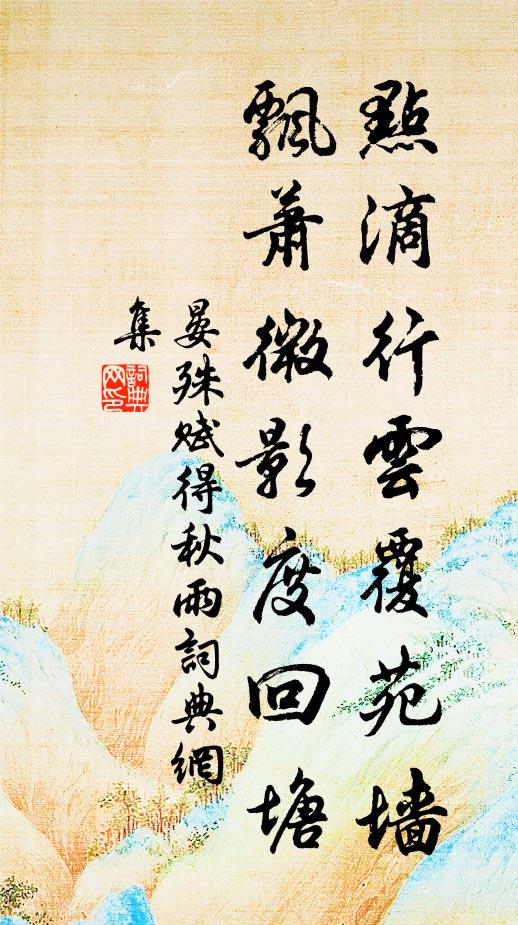 點滴行雲覆苑墙
飄蕭微影度回塘
晏殊賦得秋雨詞典網
集
詞典网印